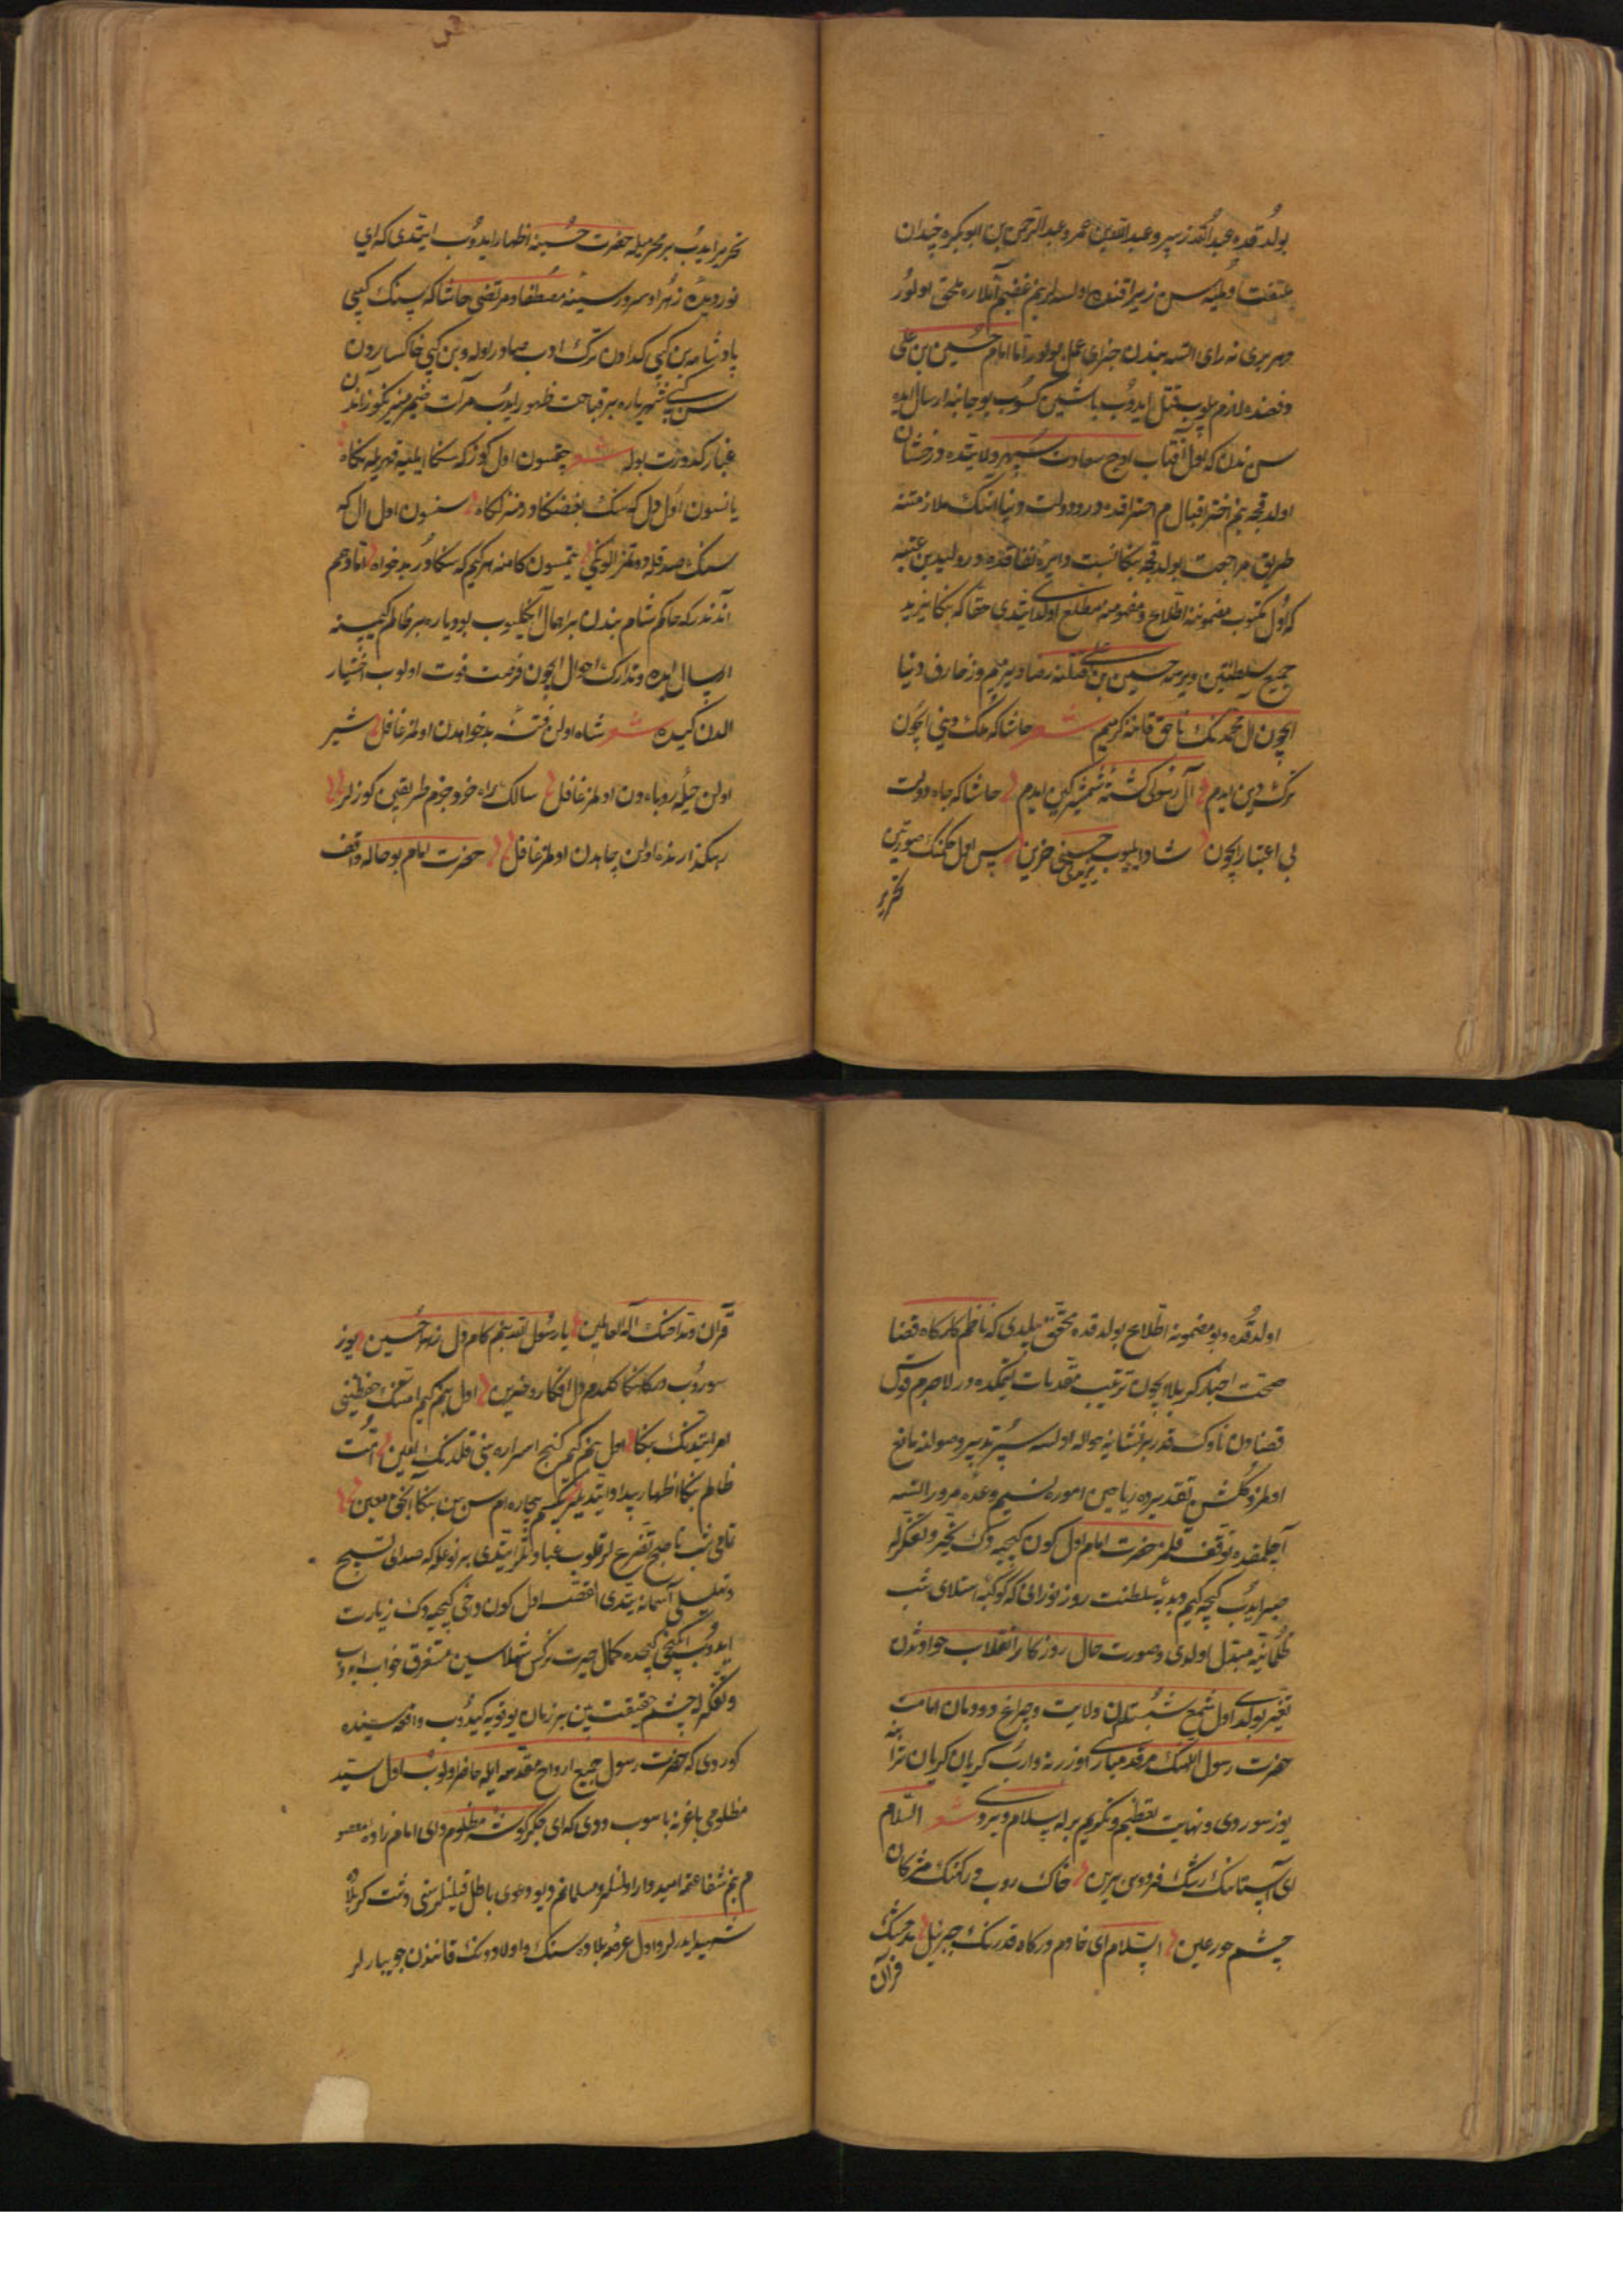 بولدقده عبدالله زبیر و عبدالله بن عمر و عبدالرحمن بن ابوبکره چندان
ملتفت اولمیه سن زیرا قنده اولسه لر بنم غضبم آنلاره ملحق اولور
و هر بری نه رای ایتسه بندن جزای عمل بولور اما امام حسین بن علی
دفعنده لازم بیلوب قتل ایدوب باشین کسوب بو جانبه ارسال ایده
سن ندن که اول آفتاب اوج سعادت سپهر ولایتده درخشان
اولدقجه بنم اختر اقبالم احتراقده در و دولت دنیا انک ملازمتنه
طریق مراجعت بولدقجه بنکا نسبت دایره نفاقده در ولید بن عتبه
که اول مکتوب مضموننه اطلاع و مفهومنه مطلع اولدی ایتدی حقا که بنکا یزید
جمیع سلطنتین ویرسه حسین بن علی قتلنه رضا ویرمیم و زخارف دنیا
ایچون ال محمدنک ناحق قاننه کرمیم شعر حاشا که ملک دینی ایچون
ترک دین ایدم آل رسولی کشته شمشیر کین ایدم حاشا که جاه دولت
بی اعتبار ایچون شاد ایلیوب یزیدی حسینی حزین پس اول حکمنک صورتین
تحریر
تحریر ایدوب بر محرمیله حضرت حسینه اظهار ایدوب ایتدی که ای
نور دیده زهرا و سرور سینه مصطفا و مرتضی حاشا که سنک کیبی
پادشاهه بن کیبی کدادن ترک ادب صادر اوله و بن کیبی خاکساردن
سن کیبی شهریاره بر قباحت ظهور ایدوب مرآت ضمیر منیرکوز آندن
غبار کدورت بوله شعر چقسون اول کوز که سکا ایلیه قهریله نکاه
یانسون اول دل که سنک بغضکا در منزلکاه سنسون اول ال که
سنک صدقله دوتمز الونکی یتمسون کامنه هر کیم که سکادر بدخواه اما وهم
آندندر که حاکم شام بندن بر احمال آکلیوب بو دیاره بر ظالم کیمسنه
ارسال ایده و تدارک احوال ایچون فرصت فوت اولوب اختیار
الدن کیده شعر شاه اولن فتنه بدخواهدن اولمز غافل شیر
اولن حیله روباهدن اولمز غافل سالک راه خرد جزم طریقین کوزلر
رهکذارنده اولن چاهدن اولمز غافل حضرت امام بو حاله واقف
اولدقده و بو مضمونه اطلاع بولدقده محقق بیلدی که ناظم کارکاه قضا
صحت اخبار کربلا ایچون ترتیب مقدمات ایتمکده در لاجرم قوس
قضادن ناوک قدر بر نشانیه حواله اولسه سپر تدبیر وصولنه مانع
اولمز و کلشن تقدیرده ریاحین اموره نسیم وعده مرور ایتسه
آچلمقده توقف قلمز حضرت امام اول کون کیجیه دک تحیر و تفکرله
صبر ایدوب کیجه کیم دبدبه سلطنت روز نورانی که کوکبه استلای شب
ظلمانیه مبتدل اولدی و صورت حال روزکار انقلاب حوادثدن
تغییر بولدی اول شمع شبستان ولایت و چراغ دودمان امامت
حضرت رسول اللهنک مرقد مبارکی اوزرینه واروب کریان کریان ترابنه
یوز سوردی و نهایت تعظیم و تکریم برله سلام ویردی شعر السلام
ای آستانک رشک فردوس برین خاک روب درکهنک مژکان
چشم حور عین السلام ای خادم درکاه قدرنک جبرئیل مدحتنک
قرآن
قرآن و مداحنک اله العالمین یا رسول الله بنم کام دل زهرا حسین یوز
سوروب درکاهنکا کلدم دل افکار و حزین اول بنم کیم امتنک حفظینی
امر ایتدنک بنکا اول بنم کیم کنج اسراره بنی قلدنک امین امت
ظالم بنکا اظهار بیداد ایتدیلر بیکسم بیچاره ام سن سن بنکا آنجق معین
تا نصف شب تا صبح تضرعلر قلوب عبادتلر ایتدی بر نوعله که صدای تسبیح
و تهلیلی آسمانه یتدی القصه اول کون دخی کیجیه دک زیارت
ایدوب ایکنجی کیجده کمال حیرت نرکس شهلاسین مستغرق خواب ایدوب
و تفکرله چشم حقیقت بین بر زمان یوقویه کیدوب واقعه سنده
کوردی که حضرت رسول جمیع ارواح مقدسه ایله حاضر اولوب اول سید
مظلومی باغرینه باسوب ددی که ای جکرکوشه مظلوم وای امام زاده معصو
م بنم شفاعتمه امیدوار اولنلر و مسلمانم دیو دعوی باطل قیلنلر سنی دشت کربلاده
شهید ایدرلر و اول عرصه بلاده سنک و اولادونک قانندن جویبارلر